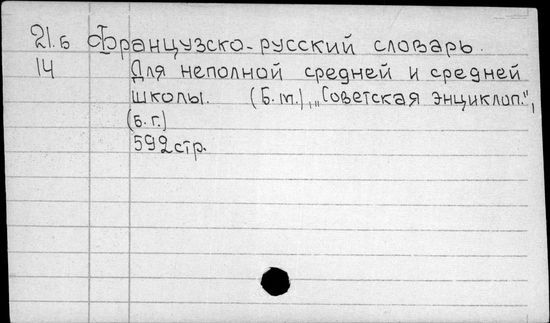 21.б Французско-русский словарь.
14 Для неполной средней и средней
школы. (Б.м.), „Советская энциклоп.",
(б.г.)
592стр.